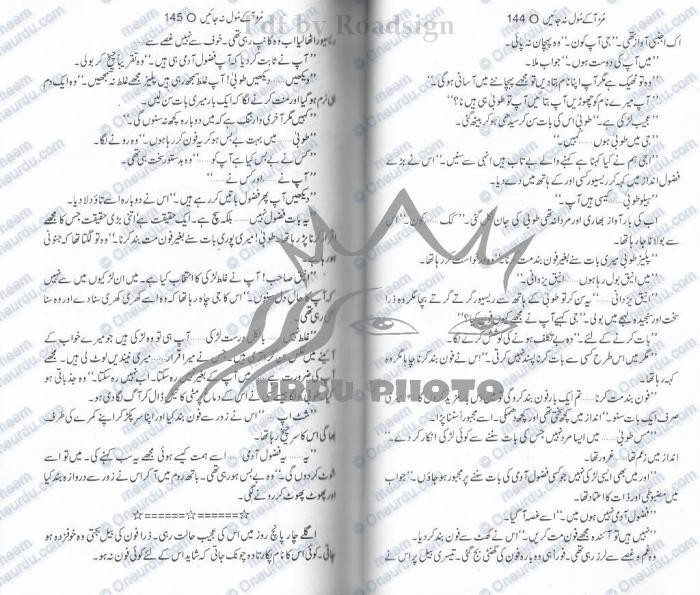 مڑ آ کے مول نہ جائیں O 144
اک اجنبی آواز تھی۔ "جی آپ کون۔" وہ پہچان نہ پائی۔
"میں آپ کی دوست ہوں۔" جواب ملا۔
"وہ تو ٹھیک ہے مگر آپ اپنا نام بتا دیں تو مجھے پہچاننے میں آسانی ہوگی۔"
"آپ میرے نام کو چھوڑیں آپ بتائیں آپ طوبیٰ ہی ہیں نا؟"
عجیب لڑکی ہے۔ طوبیٰ اس کی بات سن کر سیدھی ہو کر بیٹھ گئی۔
"جی میں طوبیٰ ہوں......کہیں۔"
"اجی ہم نے کیا کہنا ہے کہنے والے بے تاب ہیں انہی سے سنیں۔" اس نے بڑے
فضول انداز میں کہہ کر ریسیور کسی اور کے ہاتھ میں دے دیا۔
"ہیلو طوبیٰ......کیسی ہیں آپ۔"
اب کی بار آواز بھاری اور مردانہ تھی طوبیٰ کی جان نکل گئی۔ "کک......کون۔" اس
سے بولا نا جا رہا تھا۔
"پلیز طوبیٰ میری بات سنے بغیر فون بند مت کرنا۔" وہ درخواست کر رہا تھا۔
"میں انیق بول رہا ہوں......انیق یزدانی۔"
"انیق یزدانی۔" یہ سن کر تو طوبیٰ کے ہاتھ سے ریسیور گرتے گرتے بچا مگر وہ ذرا
سخت اور سنجیدہ لہجے میں بولی۔ "جی کہیے آپ نے مجھے کیوں فون کیا؟"
"بات کرنے کے لئے۔" وہ بے تکلف ہونے کی کوشش کرنے لگا۔
"مگر میں اس طرح کسی سے بات کرنا پسند نہیں کرتی۔" اس نے فون بند کرنا چاہا مگر وہ
کہہ رہا تھا۔
"فون بند مت کرنا......تم ایک بار فون بند کرو گی تو
صرف ایک بات سنو۔" انداز میں کچھ التجا تھی اور کچھ دھمکی۔ اسے مجبوراً سننا پڑا۔
"مس طوبیٰ......میں ایسا مرد نہیں جس کی بات سننے سے کوئی لڑکی انکار کر دے۔"
انداز میں زعم تھا
"اور میں بھی ایسی لڑکی نہیں جو کسی فضول آدمی کی بات سننے پر مجبور ہو جاؤں۔" جواب
میں مضبوطی اور ذات کا اعتماد تھا۔
"فضول آدمی نہیں ہوں میں۔" اسے غصہ آ گیا۔
"نہیں ہیں تو آئندہ مجھے فون مت کریں۔" اس نے کھٹ سے فون بند کر دیا۔
وہ غم و غصے سے لرز رہی تھی۔ فوراً ہی دوبارہ فون کی گھنٹی بج گئی۔ تیسری بیل پر اس نے
مڑ آ کے مول نہ جائیں O 145
ریسیور اٹھا لیا اب وہ کانپ رہی تھی۔ خوف سے نہیں غصے سے......
"آپ نے ثابت کر دیا کہ آپ فضول آدمی ہی ہیں۔" وہ تقریباً چیخ کر بولی۔
"دیکھیں......دیکھیں طوبیٰ! آپ غلط سمجھ رہی ہیں پلیز مجھے غلط نہ سمجھیں۔" وہ ایک دم
ہی نرم ہو گیا اور منت کرنے لگا کہ ایک بار میری بات سن لیں۔
"کہیں مگر آخری وارننگ ہے کہ میں دوبارہ کچھ نہ سنوں گی۔"
"طوبیٰ......میں بہت بے بس ہو کر یہ فون کر رہا ہوں۔" وہ رونے لگا۔
"کس نے بے بس کیا ہے آپ کو......" وہ بدستور سخت ہی تھی۔
"آپ نے......اور کس نے......"
"دیکھیں آپ پھر فضول باتیں کر رہے ہیں۔" اس نے دوبارہ اسے تاؤ دلا دیا۔
"یہ بات فضول نہیں......بلکہ سچ ہے۔ ایک حقیقت ہے اتنی بڑی حقیقت جس کا مجھے
اقرار کرنا پڑ رہا تھا۔ طوبیٰ! میری پوری بات سنے بغیر فون مت بند کرنا۔" وہ تو لگتا تھا کہ جنونی
اور
"انیق صاحب! آپ نے غلط لڑکی کا انتخاب کیا ہے۔ میں ان لڑکیوں میں سے نہیں
کہ آپ کا حال دل سنوں۔" اس کا جی چاہ رہا تھا کہ وہ اسے کھری کھری سنا دے اور وہ سنا
بھی رہی تھی۔
"غلط نہیں......بالکل درست لڑکی......آپ ہی تو وہ لڑکی ہیں جو میرے خواب کے
میرا قرار......میری نیندیں لوٹ لی ہیں۔ مجھے
آپ کی ضرورت ہے......میں آپ کے بغیر نہیں رہ سکتا۔ اب نہیں رہ سکتا۔" وہ جذباتی ہو
گیا۔ طوبیٰ کو لگا جیسے اس نے اس کے دماغ پر مٹی کا تیل ڈال کر آگ لگا دی ہو۔
"شٹ اپ......" اس نے زور سے فون بند کیا اور اپنا سر پکڑ کر اپنے کمرے کی طرف
بھاگی اس کا سر چیخ رہا تھا۔
"یہ......یہ فضول آدمی......اسے ہمت کیسے ہوئی مجھے یہ سب کہنے کی۔ میں تو اسے
شوٹ کر دوں گی۔" وہ بے بس ہو رہی تھی۔ باتھ روم میں آ کر اس نے زور سے دروازہ بند کیا
اور پھوٹ پھوٹ کر رونے لگی۔
☆======☆======☆
اگلے چار پانچ روز میں اس کی عجیب حالت رہی۔ ذرا فون کی بیل بجتی وہ خوفزدہ ہو
جاتی۔ کوئی اس کا نام پکارتا وہ چونک جاتی کہ شاید اس کے لئے کوئی فون نہ ہو۔
Pdf by Roadsign
URDU PHOTO
Onaurdu.com